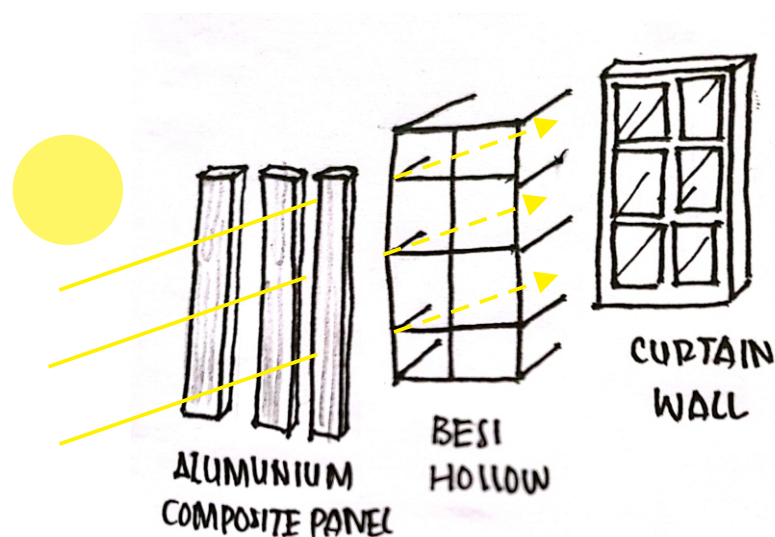 ALUMUNIUM
COMPOSITE PANEL
BESI
HOLLOW
CURTAIN
WALL